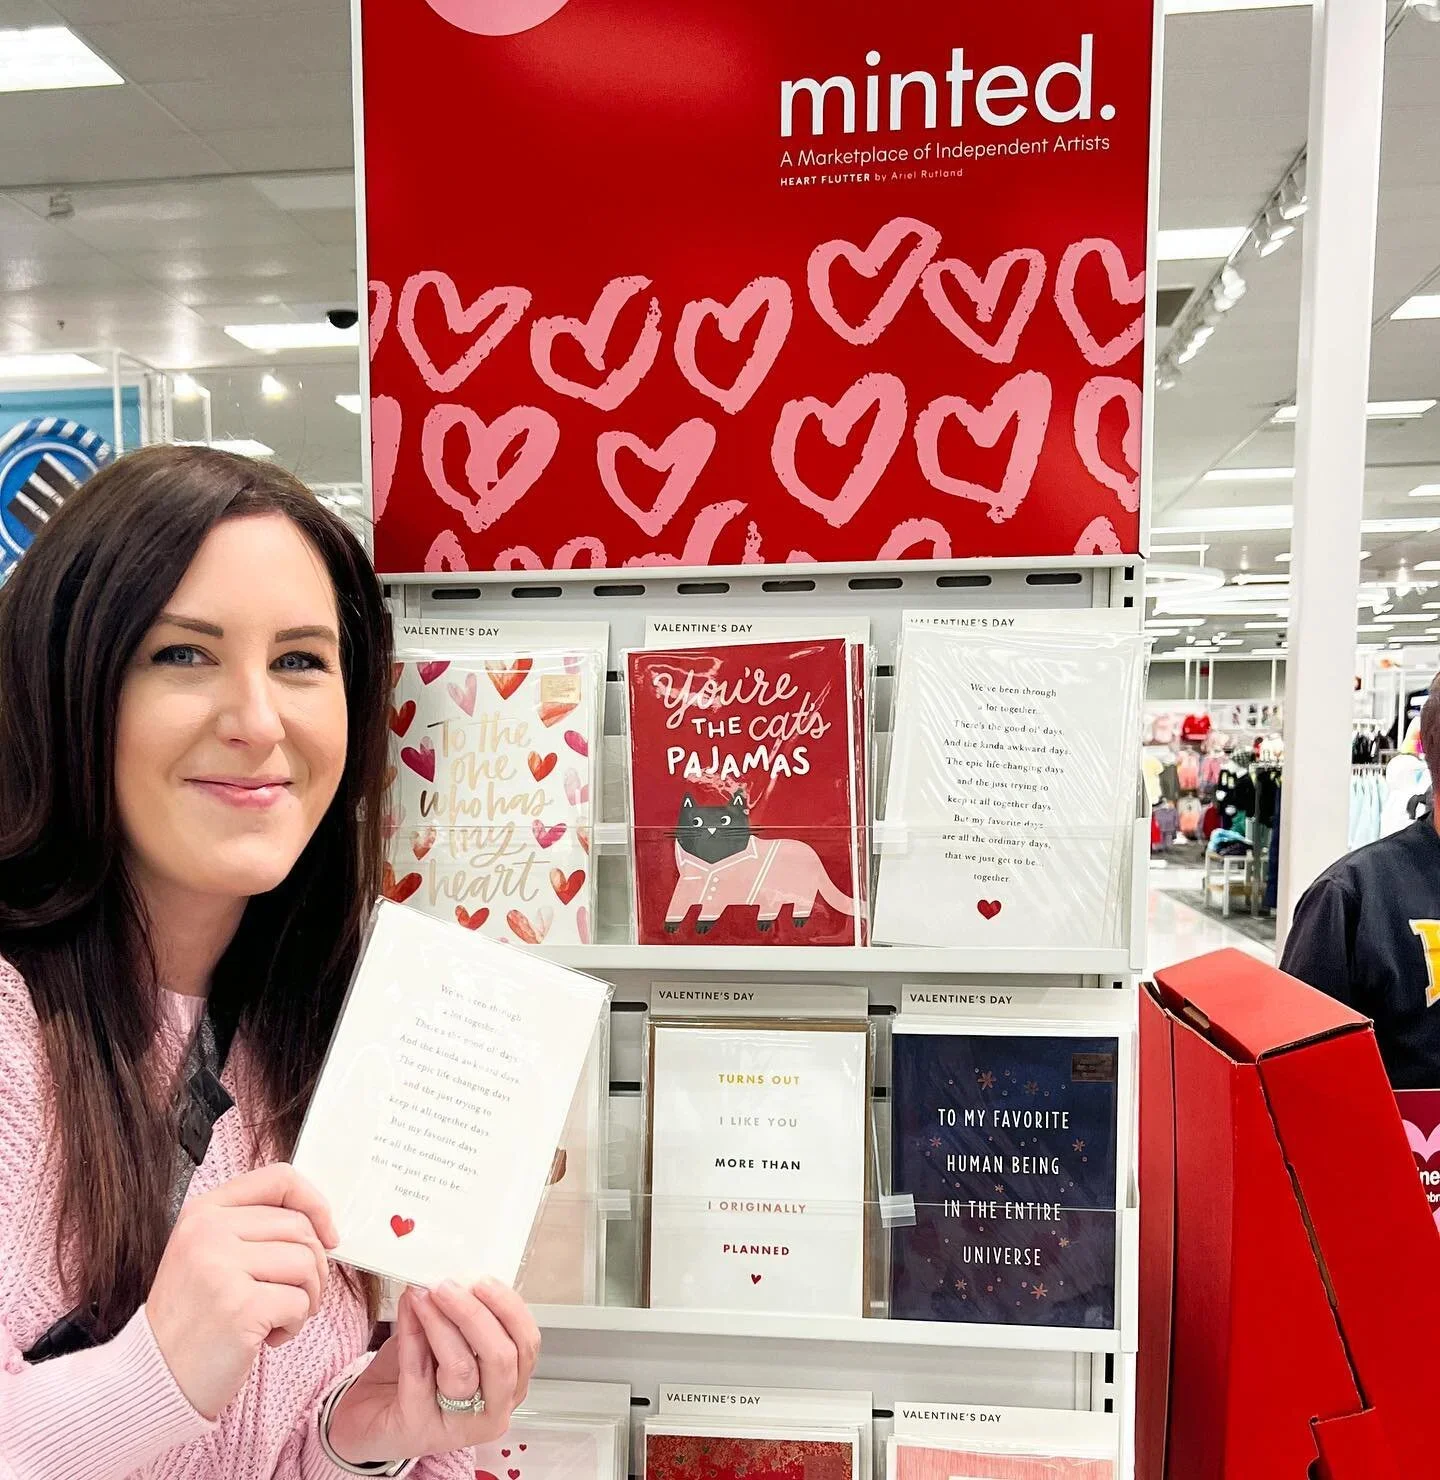 minted.
A Marketplace of Independent Artists
HEART FLUTTER by Ariel Rutland
VALENTINE'S DAY
To the
one
who has
my
heart
VALENTINE'S DAY
You're
THE cats
PAJAMAS
VALENTINE'S DAY
We've been through
a lot together...
There's the good ol' days.
And the kinda awkward days.
The epic life-changing days
and the just trying to
keep it all together days.
But my favorite days
are all the ordinary days,
that we just get to be...
together.
We've been through
a lot together...
There's the good ol' days.
And the kinda awkward days.
The epic life-changing days
and the just trying to
keep it all together days.
But my favorite days
are all the ordinary days,
that we just get to be...
together.
VALENTINE'S DAY
TURNS OUT
I LIKE YOU
MORE THAN
I ORIGINALLY
PLANNED
VALENTINE'S DAY
TO MY FAVORITE
HUMAN BEING
IN THE ENTIRE
UNIVERSE
VALENTINE'S DAY
VALENTINE'S DAY